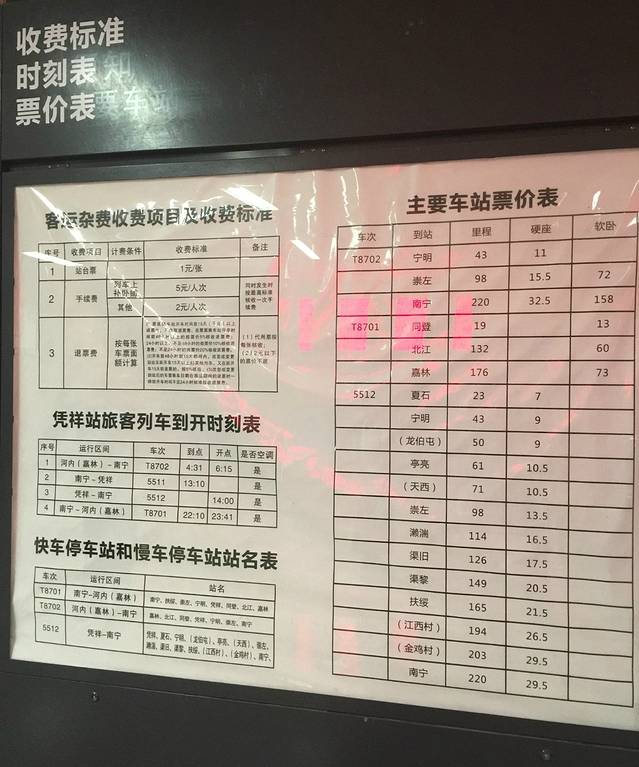 收费标准
时刻表
票价表
客运杂费收费项目及收费标准
序号 收费项目 计费条件 收费标准 备注
1 站台票 1元/张
2 手续费 列车上补卧的 5元/人次
其他 2元/人次
同时发生时按最高标准核收一次手续费
3 退票费 按每张车票面额计算
凭祥站旅客列车到开时刻表
序号 运行区间 车次 到点 开点 是否空调
1 河内(嘉林)-南宁 T8702 4:31 6:15 是
2 南宁-凭祥 5511 13:10 是
3 凭祥-南宁 5512 14:00 是
4 南宁-河内(嘉林) T8701 22:10 23:41 是
快车停车站和慢车停车站站名表
车次 运行区间 站名
T8701 南宁-河内(嘉林) 南宁、扶绥、崇左、宁明、凭祥、同登、北江、嘉林
T8702 河内(嘉林)-南宁 嘉林、北江、同登、凭祥、宁明、崇左、南宁
5512 凭祥-南宁 凭祥、夏石、宁明、(龙伯屯)、亭亮、(天西)、崇左、
濑湍、渠旧、渠黎、扶绥、(江西村)、(金鸡村)、南宁、
主要车站票价表
车次 到站 里程 硬座 软卧
T8702 宁明 43 11
崇左 98 15.5 72
南宁 220 32.5 158
T8701 同登 19 13
北江 132 60
嘉林 176 73
5512 夏石 23 7
宁明 43 9
(龙伯屯) 50 9
亭亮 61 10.5
(天西) 71 10.5
崇左 98 13.5
濑湍 114 16.5
渠旧 126 17.5
渠黎 149 20.5
扶绥 165 21.5
(江西村) 194 26.5
(金鸡村) 203 29.5
南宁 220 29.5